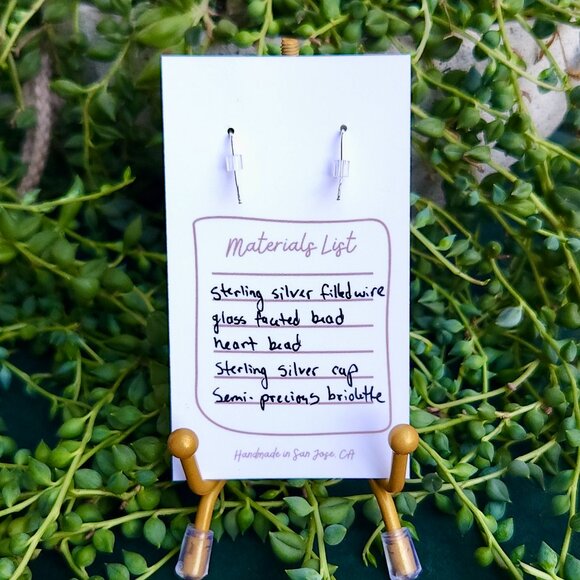 Materials List
Sterling silver filled wire
glass faceted bead
heart bead
Sterling silver cap
Semi-precious briolette
Handmade in San Jose, CA